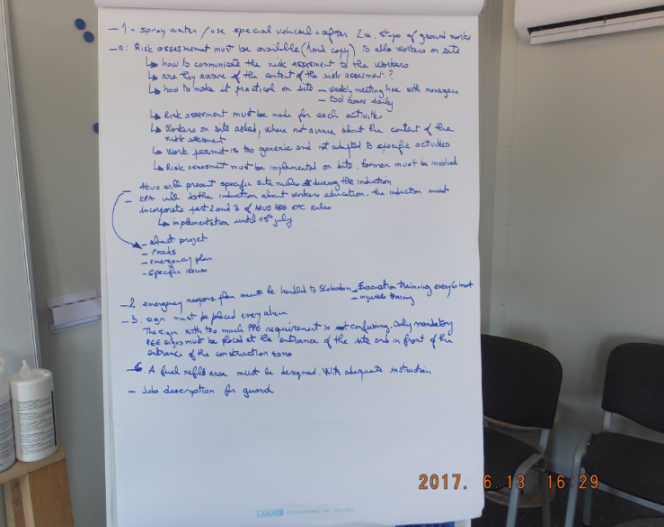 - 1 - spray water / use special vehicul - after 2 steps of ground works
- a: Risk assessment must be available (hard copy) to all workers on site
↳ how to communicate the risk assessment to the workers
↳ are they aware of the content of the risk assessment?
↳ how to make it practical on site - weekly meeting with managers
- tool boxes daily
↳ Risk assessment must be made for each activities
↳ Workers on site asked, where not aware about the content of the
risk assessment
↳ Work permit is too generic and not adapted to specific activities
↳ Risk assessment must be implemented on site. formen must be involved
- will present specific site rules during the induction
- will do the induction about workers education. The induction must
incorporate part 2 and 3 of rules
↳ implementation until 15th july
- about projet
- roads
- emergency plan
- specific issues
- 2 emergency respons plan must be handed to Slobodan - Evacuation training every 6 month
- training
- 3. sign must be placed everywhere
The sign with too much PPE requirement is confusing. Only mandatory
PPE signs must be placed at the entrance of the site and in front of the
entrance of the construction zone
- 6. A fuel refill area must be designed. With adequate instruction
- Job description for guard
2017. 6.13 16:29